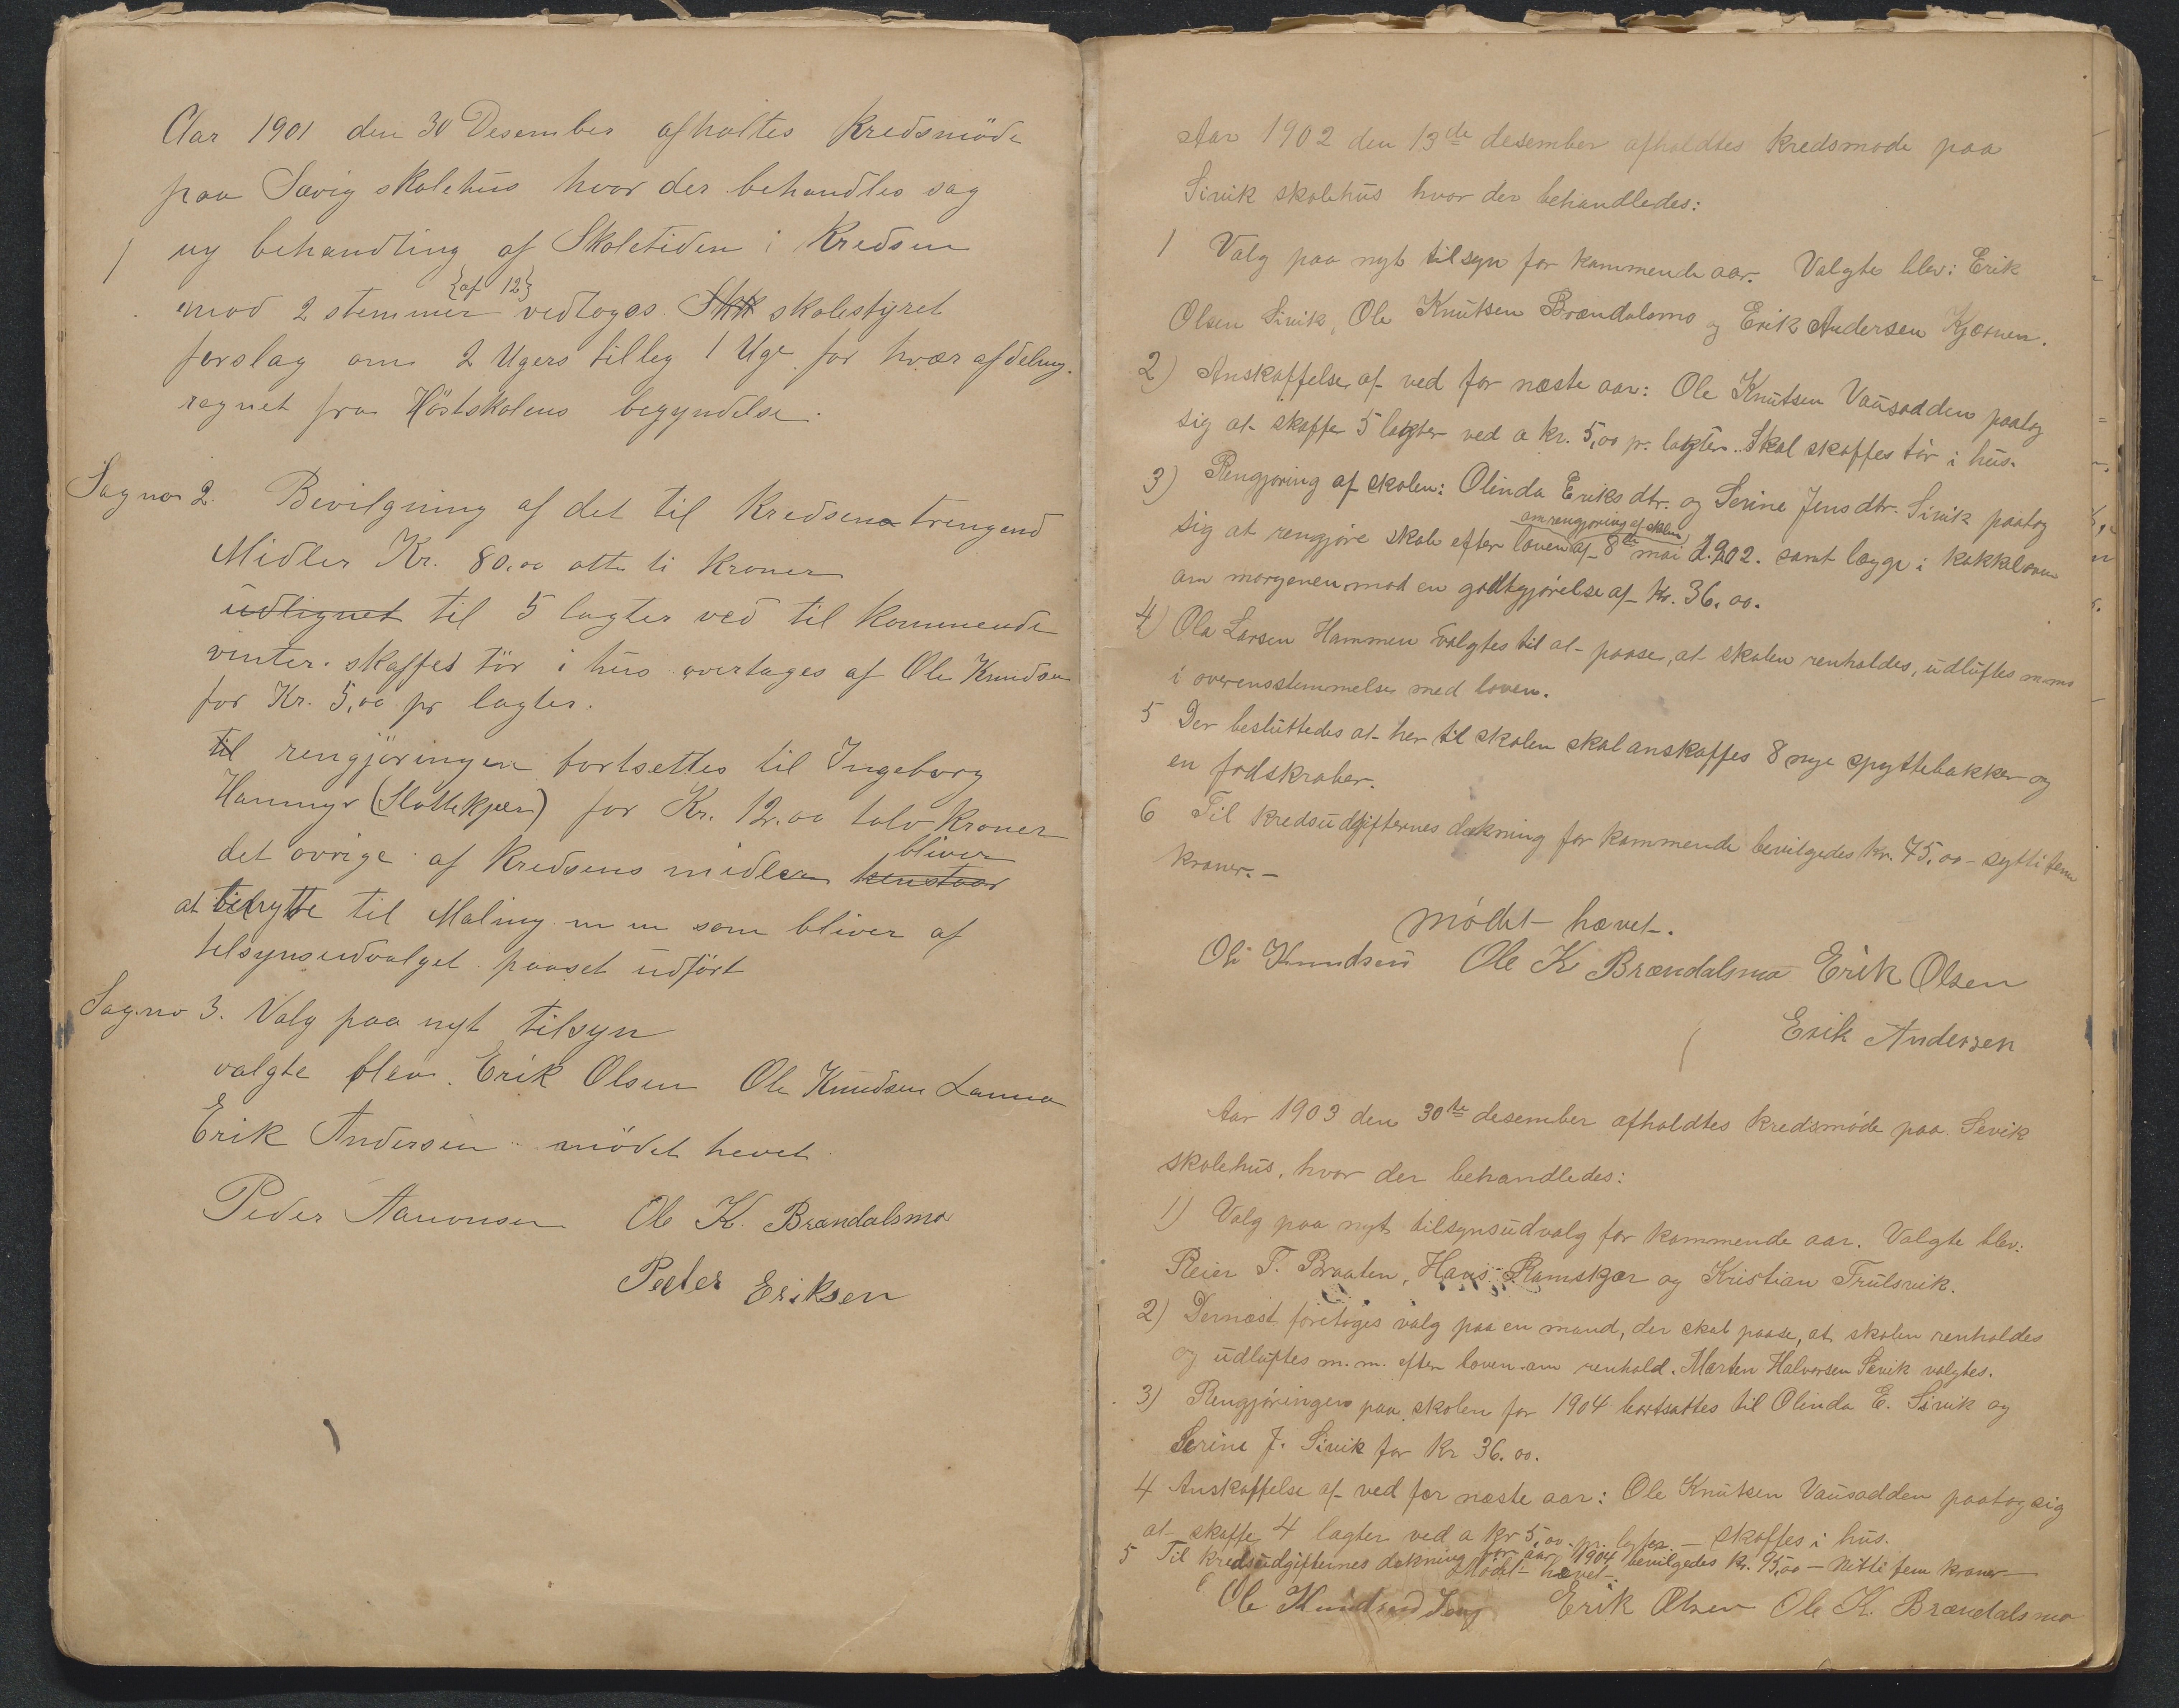 Aar 1901 den 30 Desember afholtes Kredsmöde
paa Sævig skolehus hvor der behandles sag
1 ny behandling af Skoletiden i Kredsen
{af 12}
mod 2 stemmer vedtoges skolestyret
forslag om 2 Ugers tilleg 1 Uge for hvær afdeling.
regnet fra Höstskolens begyndelse.
Sag no 2. Bevilgning af det til Kredsens trengend
Midler Kr. 80,00 otte ti Kroner
udlignet til 5 lagter ved til Kommende
vinter. skaffes tör i hus overtages af Ole Knudsen
for Kr. 5,00 pr lagter.
til rengjöringen bortsettes til Ingeborg
Hanmyr (Slottekjær) for Kr. 12.00 tolv Kroner
det øvrige af Kredsens midler bliver
at benytte til Maling m m som bliver af
telsynsudvalget paaset udført
Sag no 3. Valg paa nyt tilsyn
valgte blev. Erik Olsen Ole Knudsen
Erik Andersen mödet hevet
Peder Aanonsen Ole K. Brændalsmo
Peder Eriksen
Aar 1902 den 13de desember afholdtes kredsmøde paa
Sivik skolehus hvor der behandledes:
1 Valg paa nyt tilsyn for kommende aar. Valgte blev: Erik
Olsen Sivik, Ole Knutsen Brændalsmo og Erik Andersen Kjærnen.
2) Anskaffelse af ved for næste aar: Ole Knutsen Vausodden paatog
sig at skaffe 5 lagter ved a kr. 5,00 pr. lagter. Skal skaffes tør i hus.
3) Rengjøring af skolen: Olinda Eriks dtr. og Serine Jens dtr. Sivik paatog
om rengjøring af skolen
sig at rengjøre skole efter loven af 8de mai 1902. samt lægge i kakkelovn
om morgenen mod en godtgjørelse af Kr. 36.00.
4) Ole Larsen Hammen valgtes til at paase, at skolen renholdes, udluftes m.m
i overensstemmelse med loven.
5 Der besluttedes at her til skolen skal anskaffes 8 nye spyttebakker og
en fodskraber.
6 Til Kredsudgifternes dækning for kommende bevilgedes kr. 75,00 - sytti fem
kroner. -
Mødet hævet.
Ole Knudsen Ole K Brændalsmo Erik Olsen
Erik Andersen
Aar 1903 den 30te desember afholdtes kredsmøde paa Sevik
skolehus, hvor der behandledes:
1) Valg paa nyt tilsynsudvalg for kommende aar. Valgte blev:
Reier T. Braaten, Hans Ramskjær og Kristian Trulsvik.
2) Dernæst foretoges valg paa en mand, der skal paase, at skolen renholdes
og udluftes m. m. efter loven om renhold. Morten Halvorsen Sevik valgtes.
3) Rengjøringen paa skolen for 1904 bortsattes til Olinda E. Sivik og
Serine J. Sivik for kr 36.00.
4 Anskaffelse af ved for næste aar: Ole Knutsen Vausodden paatog sig
at skaffe 4 lagter ved a kr 5,00 pr. lagter. - Skaffes i hus.
5 Til kredsudgifternes dækning for aar 1904 bevilgedes kr. 95,00 - Nitti fem kroner
Mødet hævet.
Ole Knudsen Erik Olsen Ole K. Brændalsmo